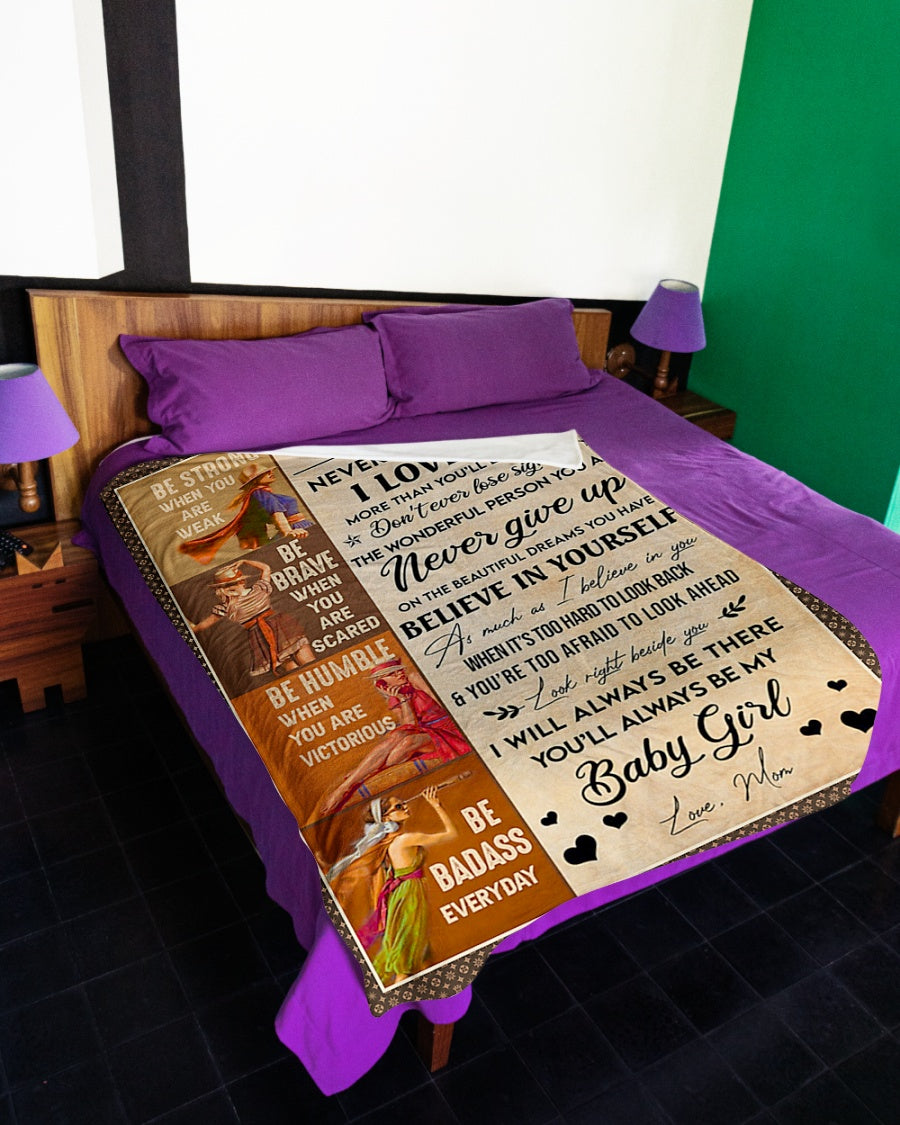 BE STRONG
WHEN YOU
ARE
WEAK
BE
BRAVE
WHEN
YOU
ARE
SCARED
BE HUMBLE
WHEN
YOU ARE
VICTORIOUS
BE
BADASS
EVERYDAY
NEVER
I LOVE
MORE THAN YOU'LL
Don't ever lose
THE WONDERFUL PERSON YOU
Never give up
ON THE BEAUTIFUL DREAMS YOU HAVE
BELIEVE IN YOURSELF
As much as I believe in you
WHEN IT'S TOO HARD TO LOOK BACK
& YOU'RE TOO AFRAID TO LOOK AHEAD
Look right beside you
I WILL ALWAYS BE THERE
YOU'LL ALWAYS BE MY
Baby Girl
Love, Mom